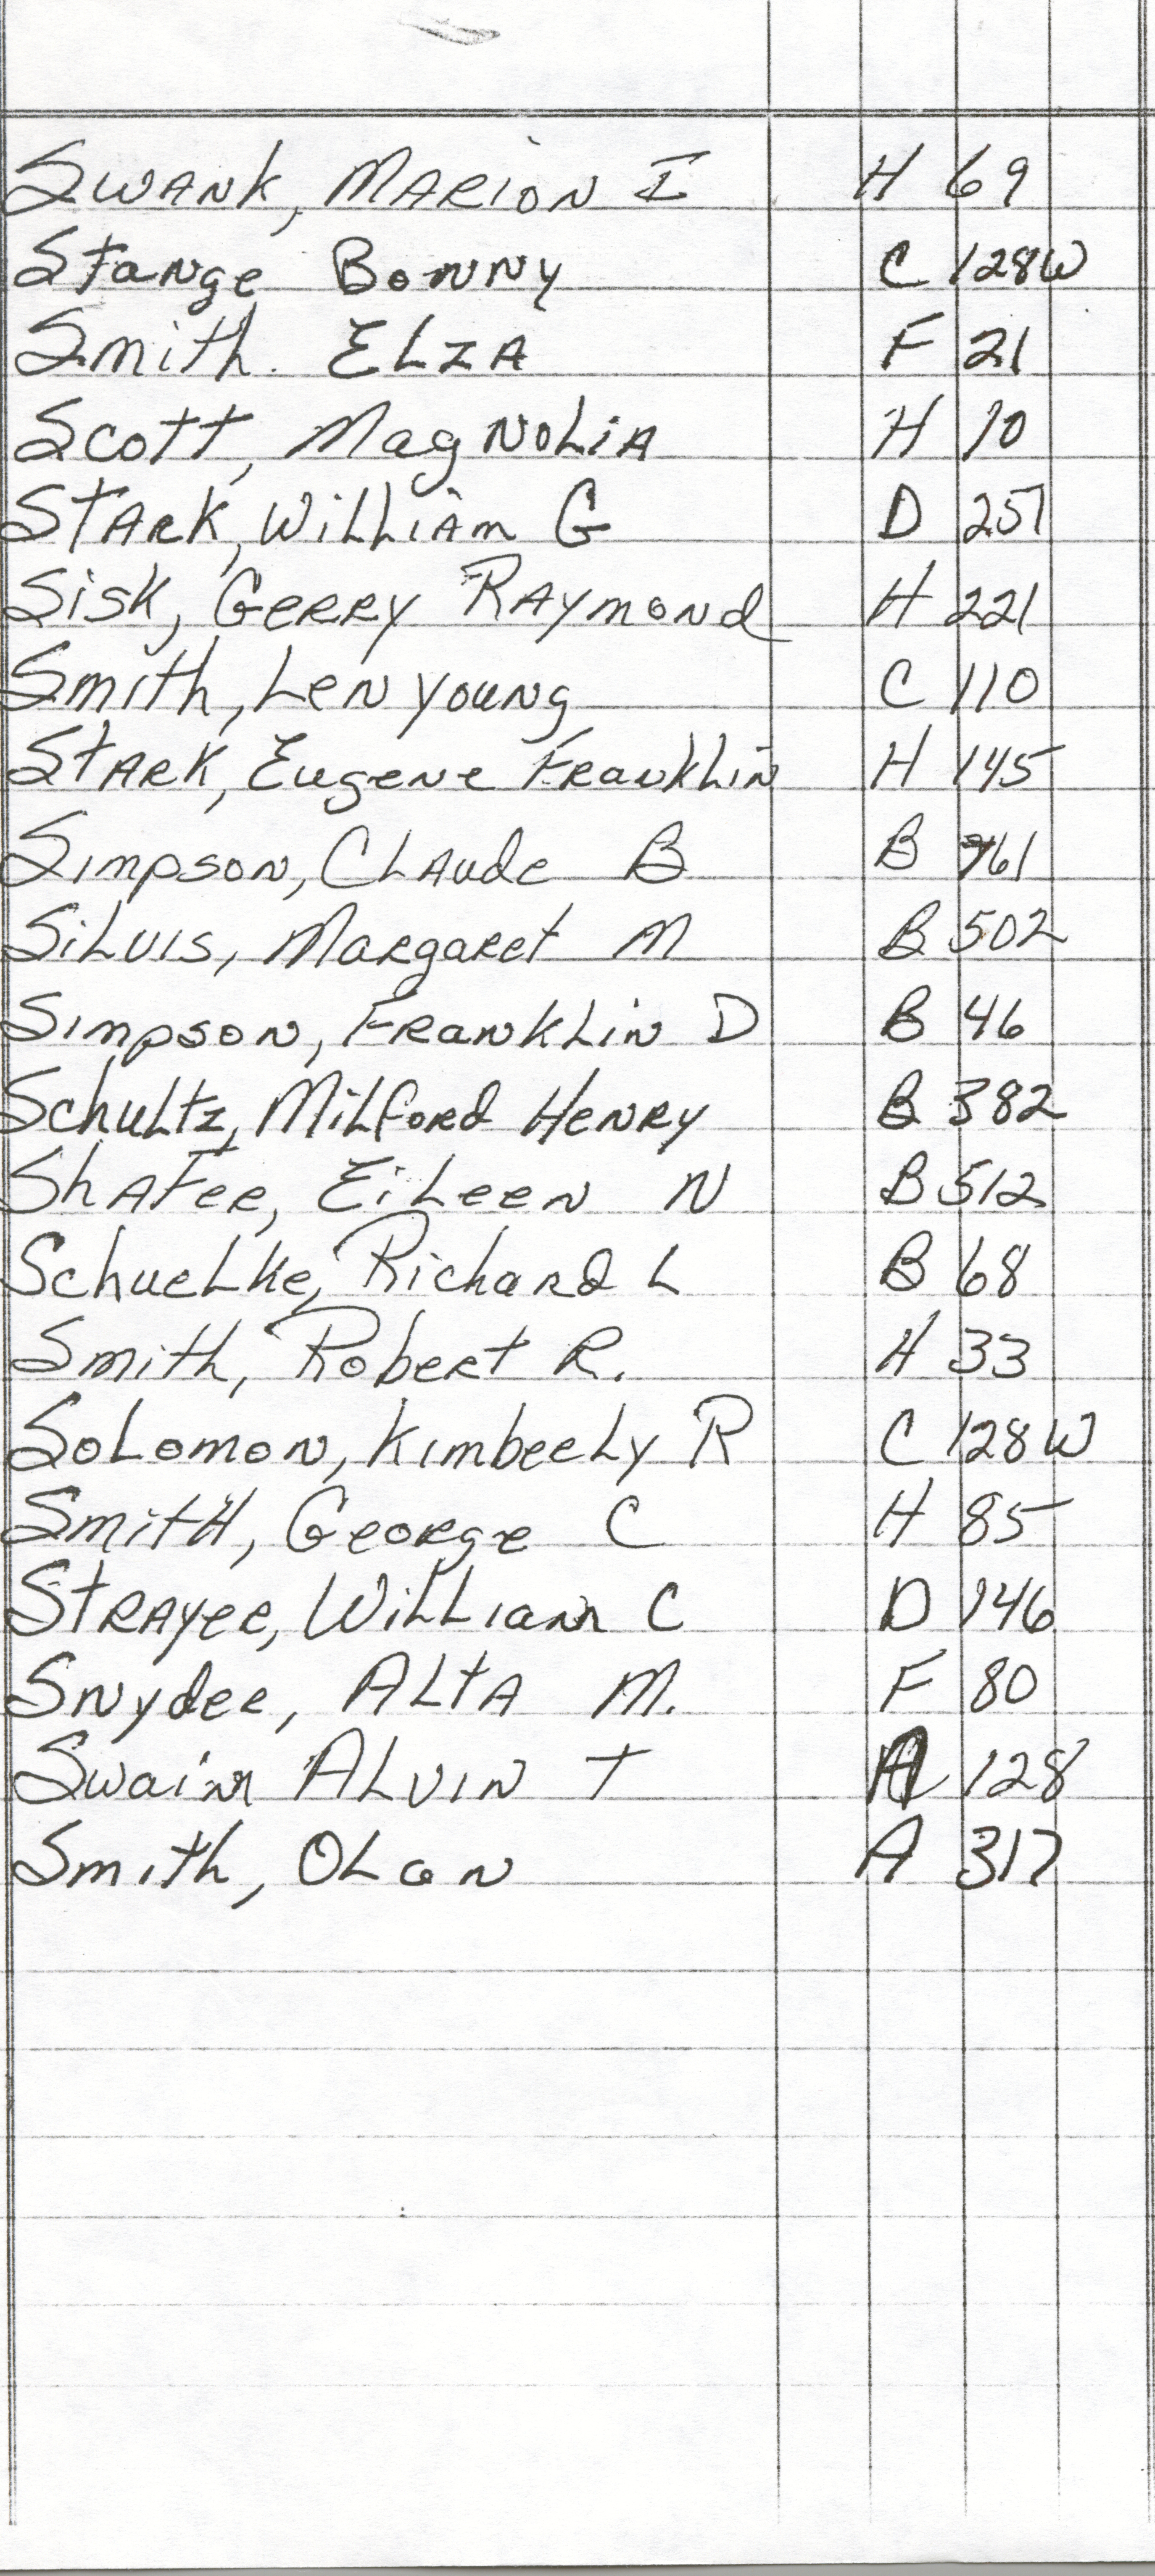 SWANK, MARION I H 69
Stange Bonny C 128W
Smith. ELZA F 21
Scott, MagNoLiA H 10
STARK, WiLLiAm G D 257
Sisk, GERRY RAYmond H 221
Smith, Len young C 110
STARK, Eugene FRankLin H 145
Simpson, CLAude B B 961
SiLvis, MaRgaRet M B 502
Simpson, FRanKLin D B 46
SchuLtz, MiLfoRd HenRy B 382
ShAFeR, EiLeen N B 512
SchueLke, RichaRd L B 68
Smith, RobeRt R. H 33
SoLomon, KimbeRLy R C 128W
SmitH, GeoRge C H 85
STRAYeR, WiLLiam C D 146
SnydeR, ALtA M. F 80
Swaim ALvin T A 128
Smith, OLan A 317